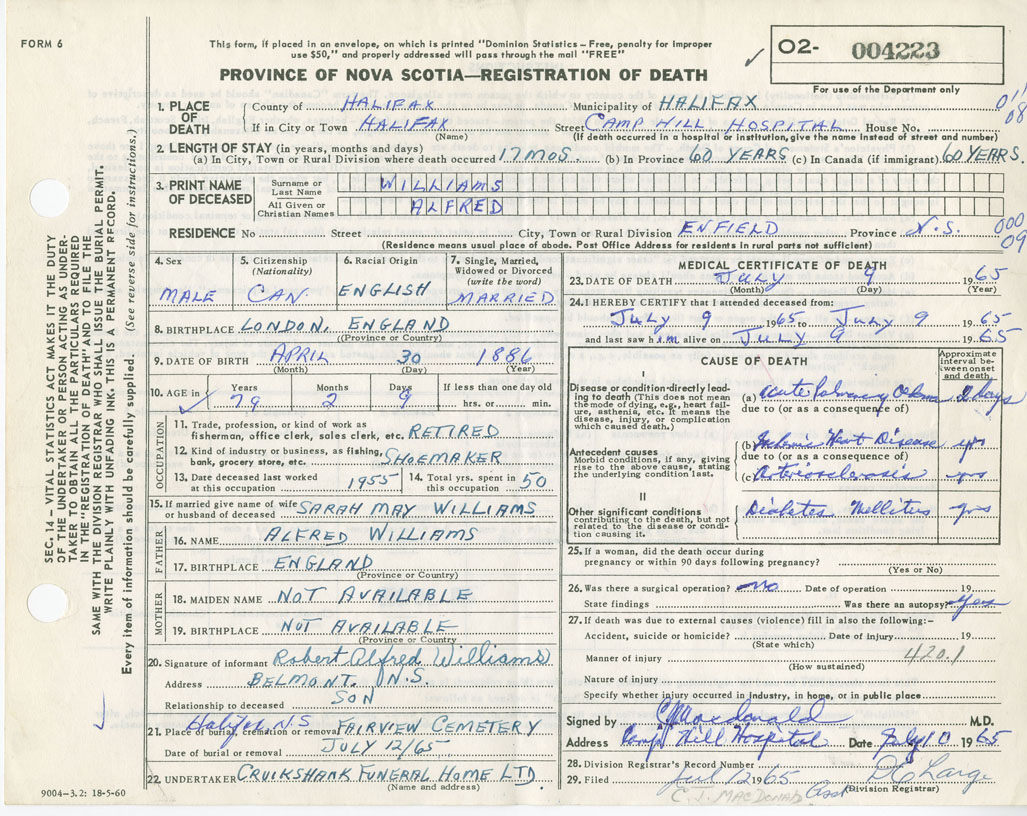 FORM 6
This form, if placed in an envelope, on which is printed "Dominion Statistics – Free, penalty for improper
use $50," and properly addressed will pass through the mail "FREE"
PROVINCE OF NOVA SCOTIA—REGISTRATION OF DEATH
O2- 004223
For use of the Department only
SEC. 14 – VITAL STATISTICS ACT MAKES IT THE DUTY
OF THE UNDERTAKER OR PERSON ACTING AS UNDER-
TAKER TO OBTAIN ALL THE PARTICULARS REQUIRED
IN THE "REGISTRATION OF DEATH" AND TO FILE THE
SAME WITH THE DIVISION REGISTRAR WHO SHALL ISSUE THE BURIAL PERMIT.
WRITE PLAINLY WITH UNFADING INK. THIS IS A PERMANENT RECORD.
Every item of information should be carefully supplied. (See reverse side for instructions.)
1. PLACE OF DEATH
County of HALIFAX Municipality of HALIFAX
011
08
If in City or Town HALIFAX Street CAMP HILL HOSPITAL House No.
(Name) (If death occurred in a hospital or institution, give the name instead of street and number)
2. LENGTH OF STAY (in years, months and days)
(a) In City, Town or Rural Division where death occurred 17 MOS. (b) In Province 60 YEARS (c) In Canada (if immigrant) 60 YEARS.
3. PRINT NAME OF DECEASED
Surname or Last Name WILLIAMS
All Given or Christian Names ALFRED
RESIDENCE No Street City, Town or Rural Division ENFIELD Province N.S. 000
09
(Residence means usual place of abode. Post Office Address for residents in rural parts not sufficient)
4. Sex
MALE
5. Citizenship
(Nationality)
CAN.
6. Racial Origin
ENGLISH
7. Single, Married,
Widowed or Divorced
(write the word)
MARRIED
8. BIRTHPLACE LONDON, ENGLAND
(Province or Country)
9. DATE OF BIRTH APRIL 30 1886
(Month) (Day) (Year)
10. AGE in
Years Months Days If less than one day old
79 2 9 hrs. or min.
OCCUPATION
11. Trade, profession, or kind of work as
fisherman, office clerk, sales clerk, etc. RETIRED
12. Kind of industry or business, as fishing,
bank, grocery store, etc. SHOEMAKER
13. Date deceased last worked
at this occupation 1955
14. Total yrs. spent in
this occupation 50
15. If married give name of wife
or husband of deceased SARAH MAY WILLIAMS
FATHER
16. NAME ALFRED WILLIAMS
17. BIRTHPLACE ENGLAND
(Province or Country)
MOTHER
18. MAIDEN NAME NOT AVAILABLE
19. BIRTHPLACE NOT AVAILABLE
(Province or Country)
20. Signature of informant Robert Alfred Williams
Address BELMONT, N.S.
Relationship to deceased SON
Halifax N.S
21. Place of burial, cremation or removal FAIRVIEW CEMETERY
Date of burial or removal JULY 12/65
22. UNDERTAKER CRUIKSHANK FUNERAL HOME LTD.
(Name and address)
9004-3.2: 18-5-60
MEDICAL CERTIFICATE OF DEATH
23. DATE OF DEATH JULY 9 1965
(Month) (Day) (Year)
24. I HEREBY CERTIFY that I attended deceased from:
JULY 9 1965 to JULY 9 1965
and last saw him alive on JULY 9 1965
CAUSE OF DEATH
Approximate
interval be-
tween onset
and death.
I
Disease or condition directly lead-
ing to death (This does not mean
the mode of dying, e.g., heart fail-
ure, asthenia, etc. It means the
disease, injury, or complication
which caused death.)
(a) Acute Pulmonary Oedema days
due to (or as a consequence of)
Antecedent causes
Morbid conditions, if any, giving
rise to the above cause, stating
the underlying condition last.
(b) Ischemic Heart Disease yrs
due to (or as a consequence of)
(c) Arteriosclerosis yrs
II
Other significant conditions
contributing to the death, but not
related to the disease or condi-
tion causing it.
Diabetes Mellitus yrs
25. If a woman, did the death occur during
pregnancy or within 90 days following pregnancy?
(Yes or No)
26. Was there a surgical operation? No Date of operation 19
State findings Was there an autopsy? Yes
27. If death was due to external causes (violence) fill in also the following:–
Accident, suicide or homicide? Date of injury 19
(State which)
Manner of injury 420.1
(How sustained)
Nature of injury
Specify whether injury occurred in industry, in home, or in public place
Signed by CJ Macdonald M.D.
Address Camp Hill Hospital Date July 10 1965
28. Division Registrar's Record Number
29. Filed Jul 12 1965 Large
(Division Registrar)
C. J. MACDONALD